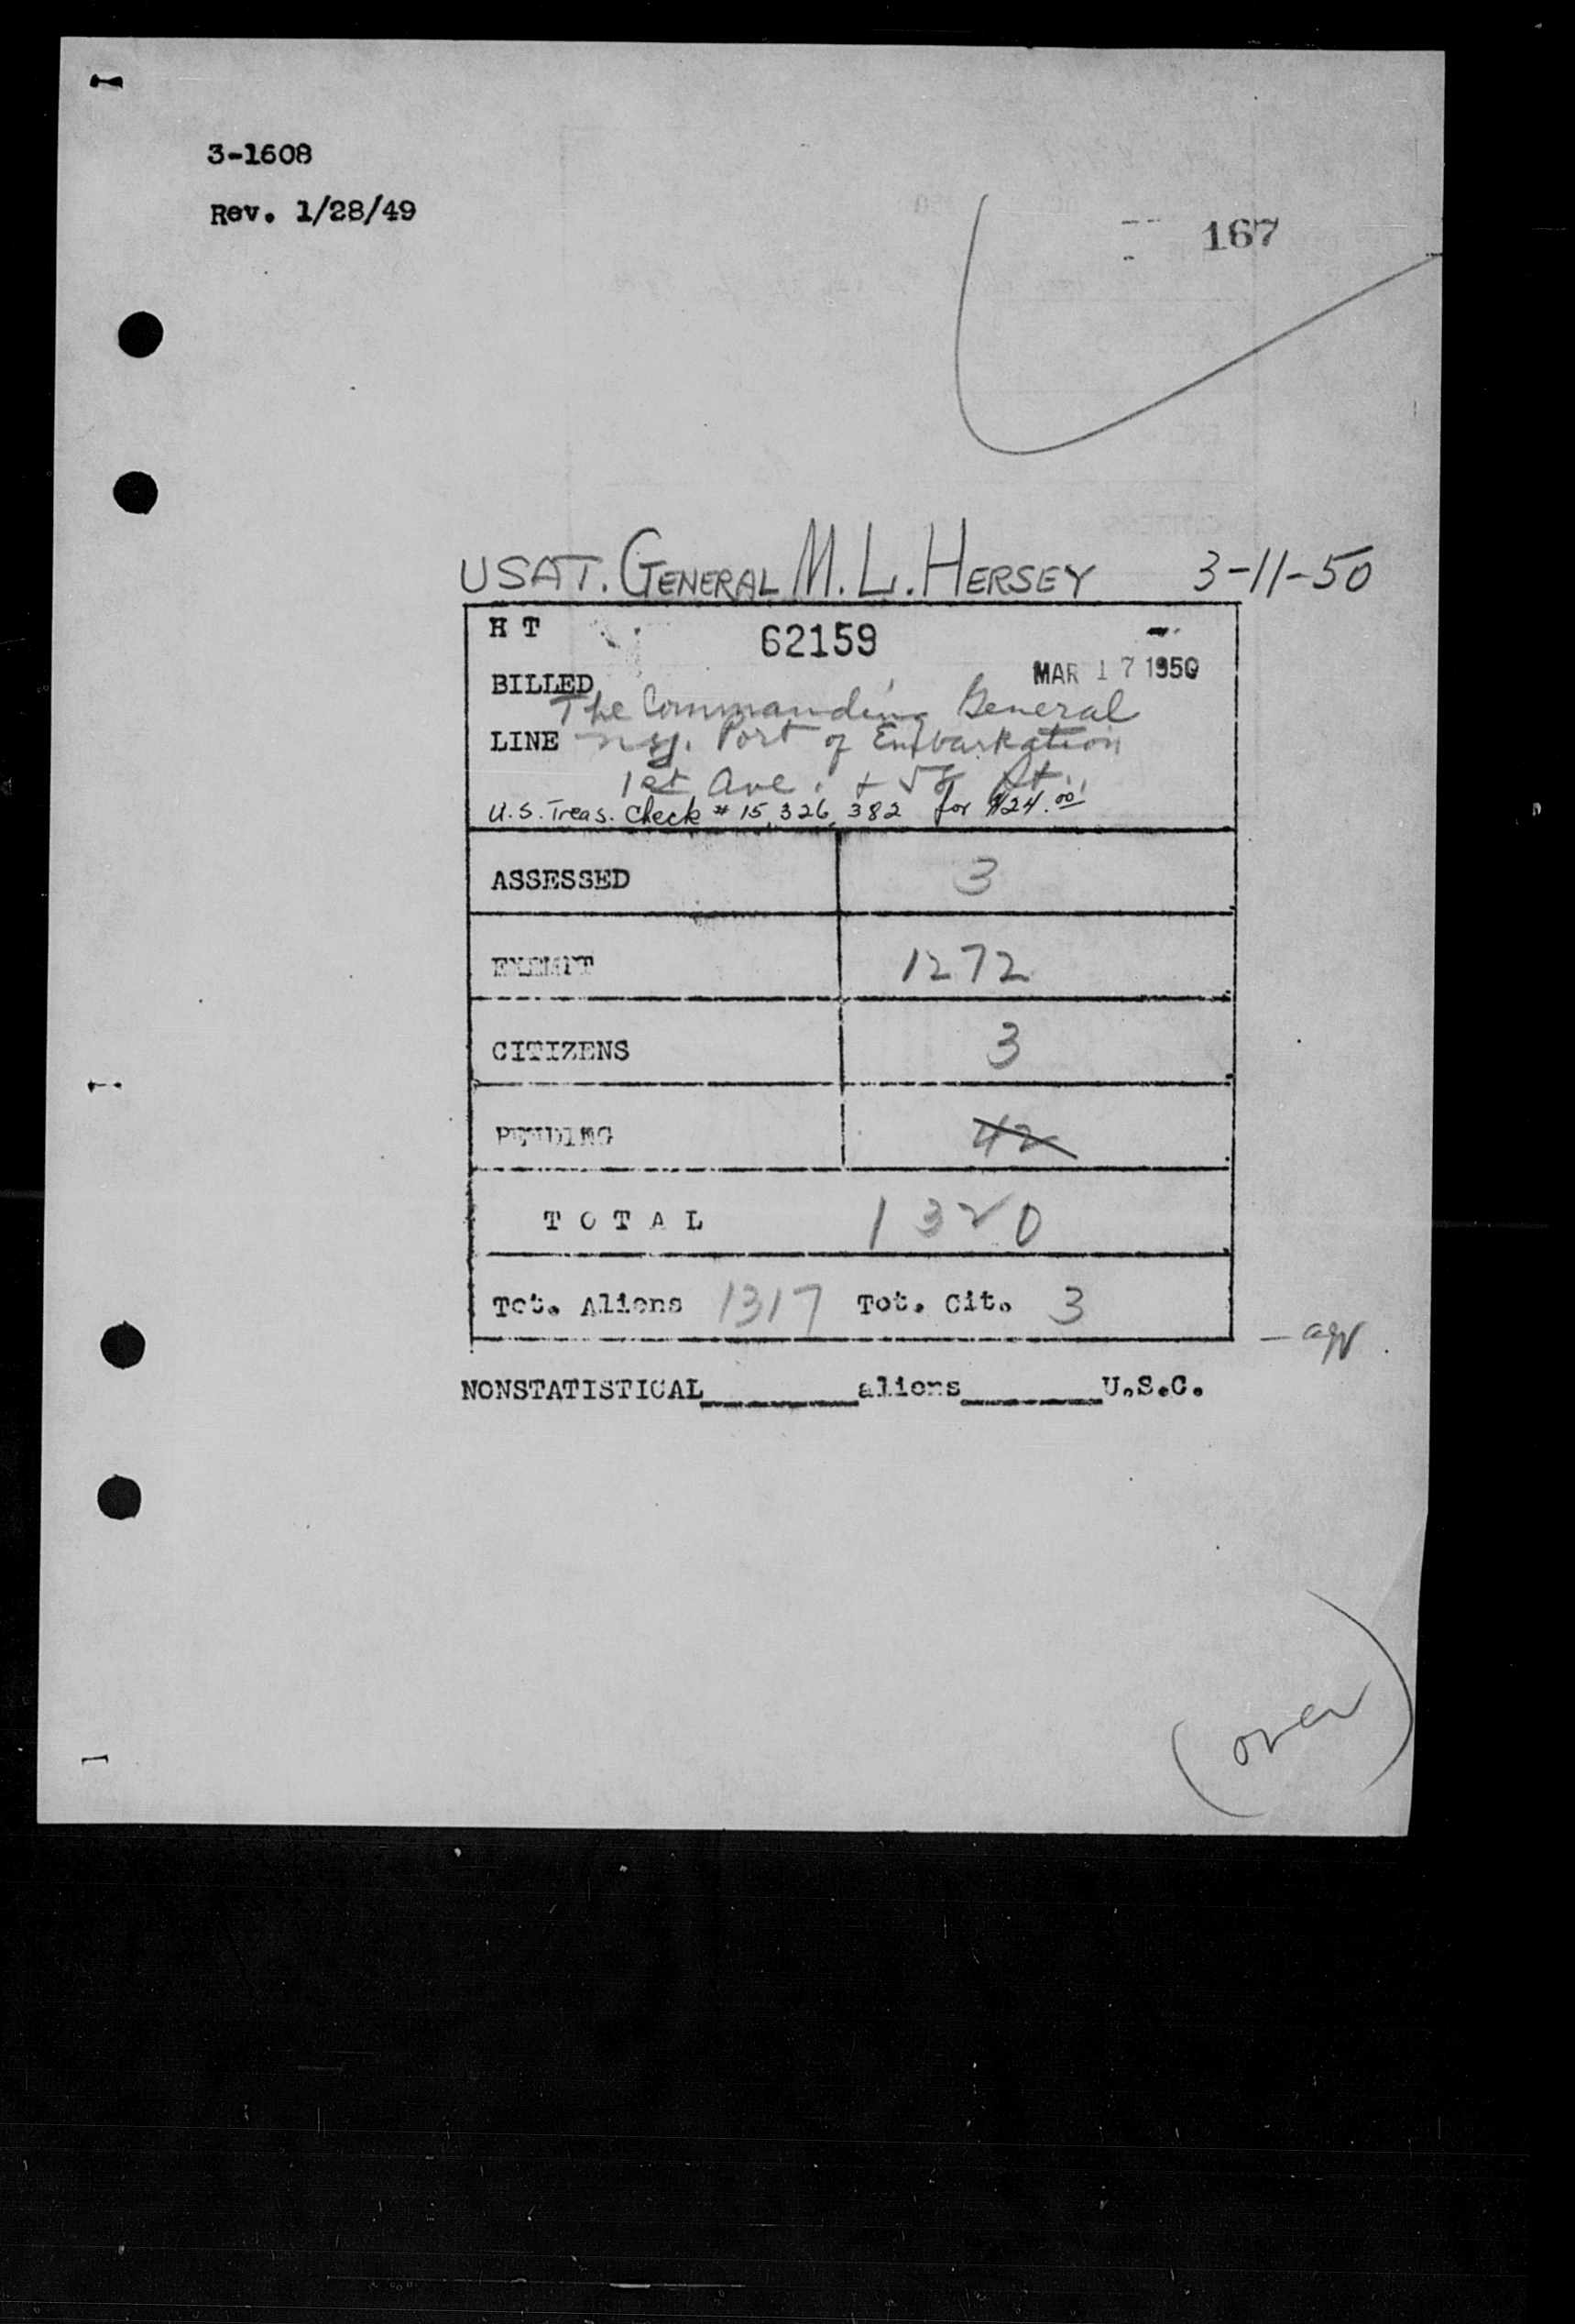 3-1608
Rev. 1/28/49
167
USAT. GENERAL M. L. HERSEY 3-11-50
H T 62159
MAR 17 1950
BILLED The Commanding General
LINE Port of Embarkation
1st Ave. + 58 St.
U.S. Treas. Check # 15,326,382 for $24.00
ASSESSED 3
EXEMPT 1272
CITIZENS 3
PENDING 42
TOTAL 1320
Tot. Aliens 1317 Tot. Cit. 3
NONSTATISTICAL________aliens________U.S.C.
(over)